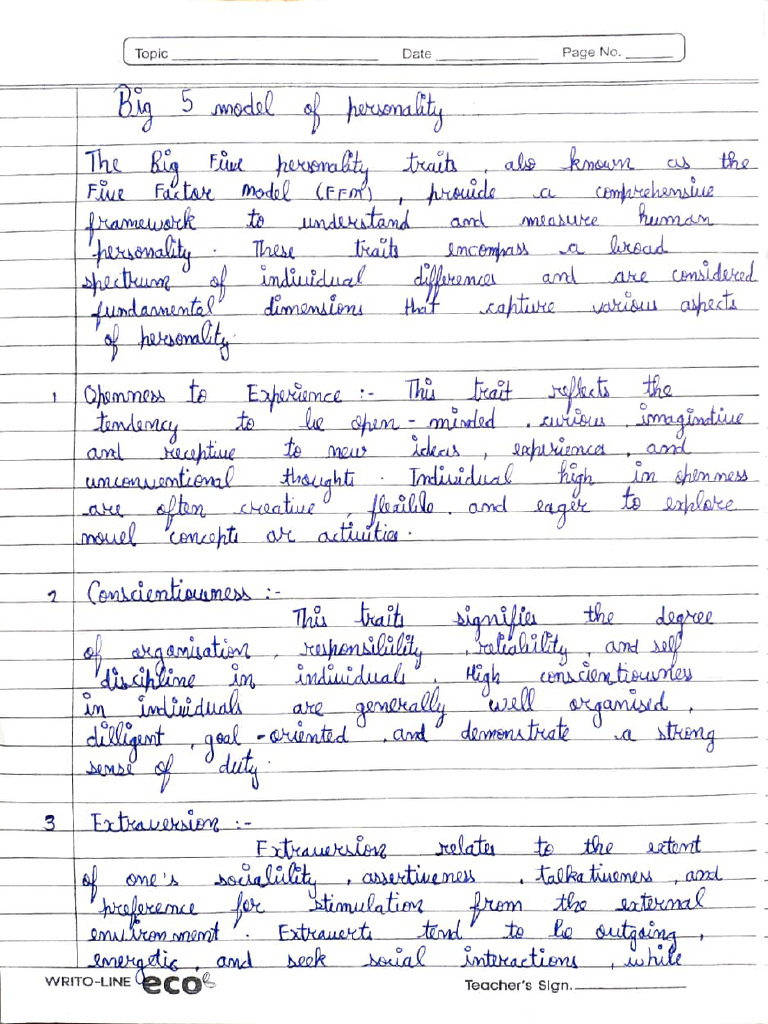 Topic Date Page No.
Big 5 model of personality
The Big Five personality traits, also known as the
Five Factor Model (FFM), provide a comprehensive
framework to understand and measure human
personality. These traits encompass a broad
spectrum of individual differences and are considered
fundanmental dimensions that capture various aspects
of personality.
1 Openness to Experience :- This trait reflects the
tendency to be open-minded, curious, imagindive
and receptive to new ideas, experiences, and
unconventional thoughts. Individual high in openness
are often creative, flexible, and eager to explore
novel concepts or activities.
2 Conscientiousness :-
This traits signifies the degree
of organisation, responsibility, reliability, and self
discipline in individuals. High conscientiousness
in individuals are generally well organised,
dilligent, goal-oriented, and demonstrate a strong
sense of duty.
3 Extraversion :-
Extraversion relates to the extent
of one's sociability, assertiveness, talkativeness, and
preference for stimulation from the external
environment. Extraverts tend to be outgoing,
energetic, and seek social interactions, while
WRITO-LINE eco Teacher's Sign.